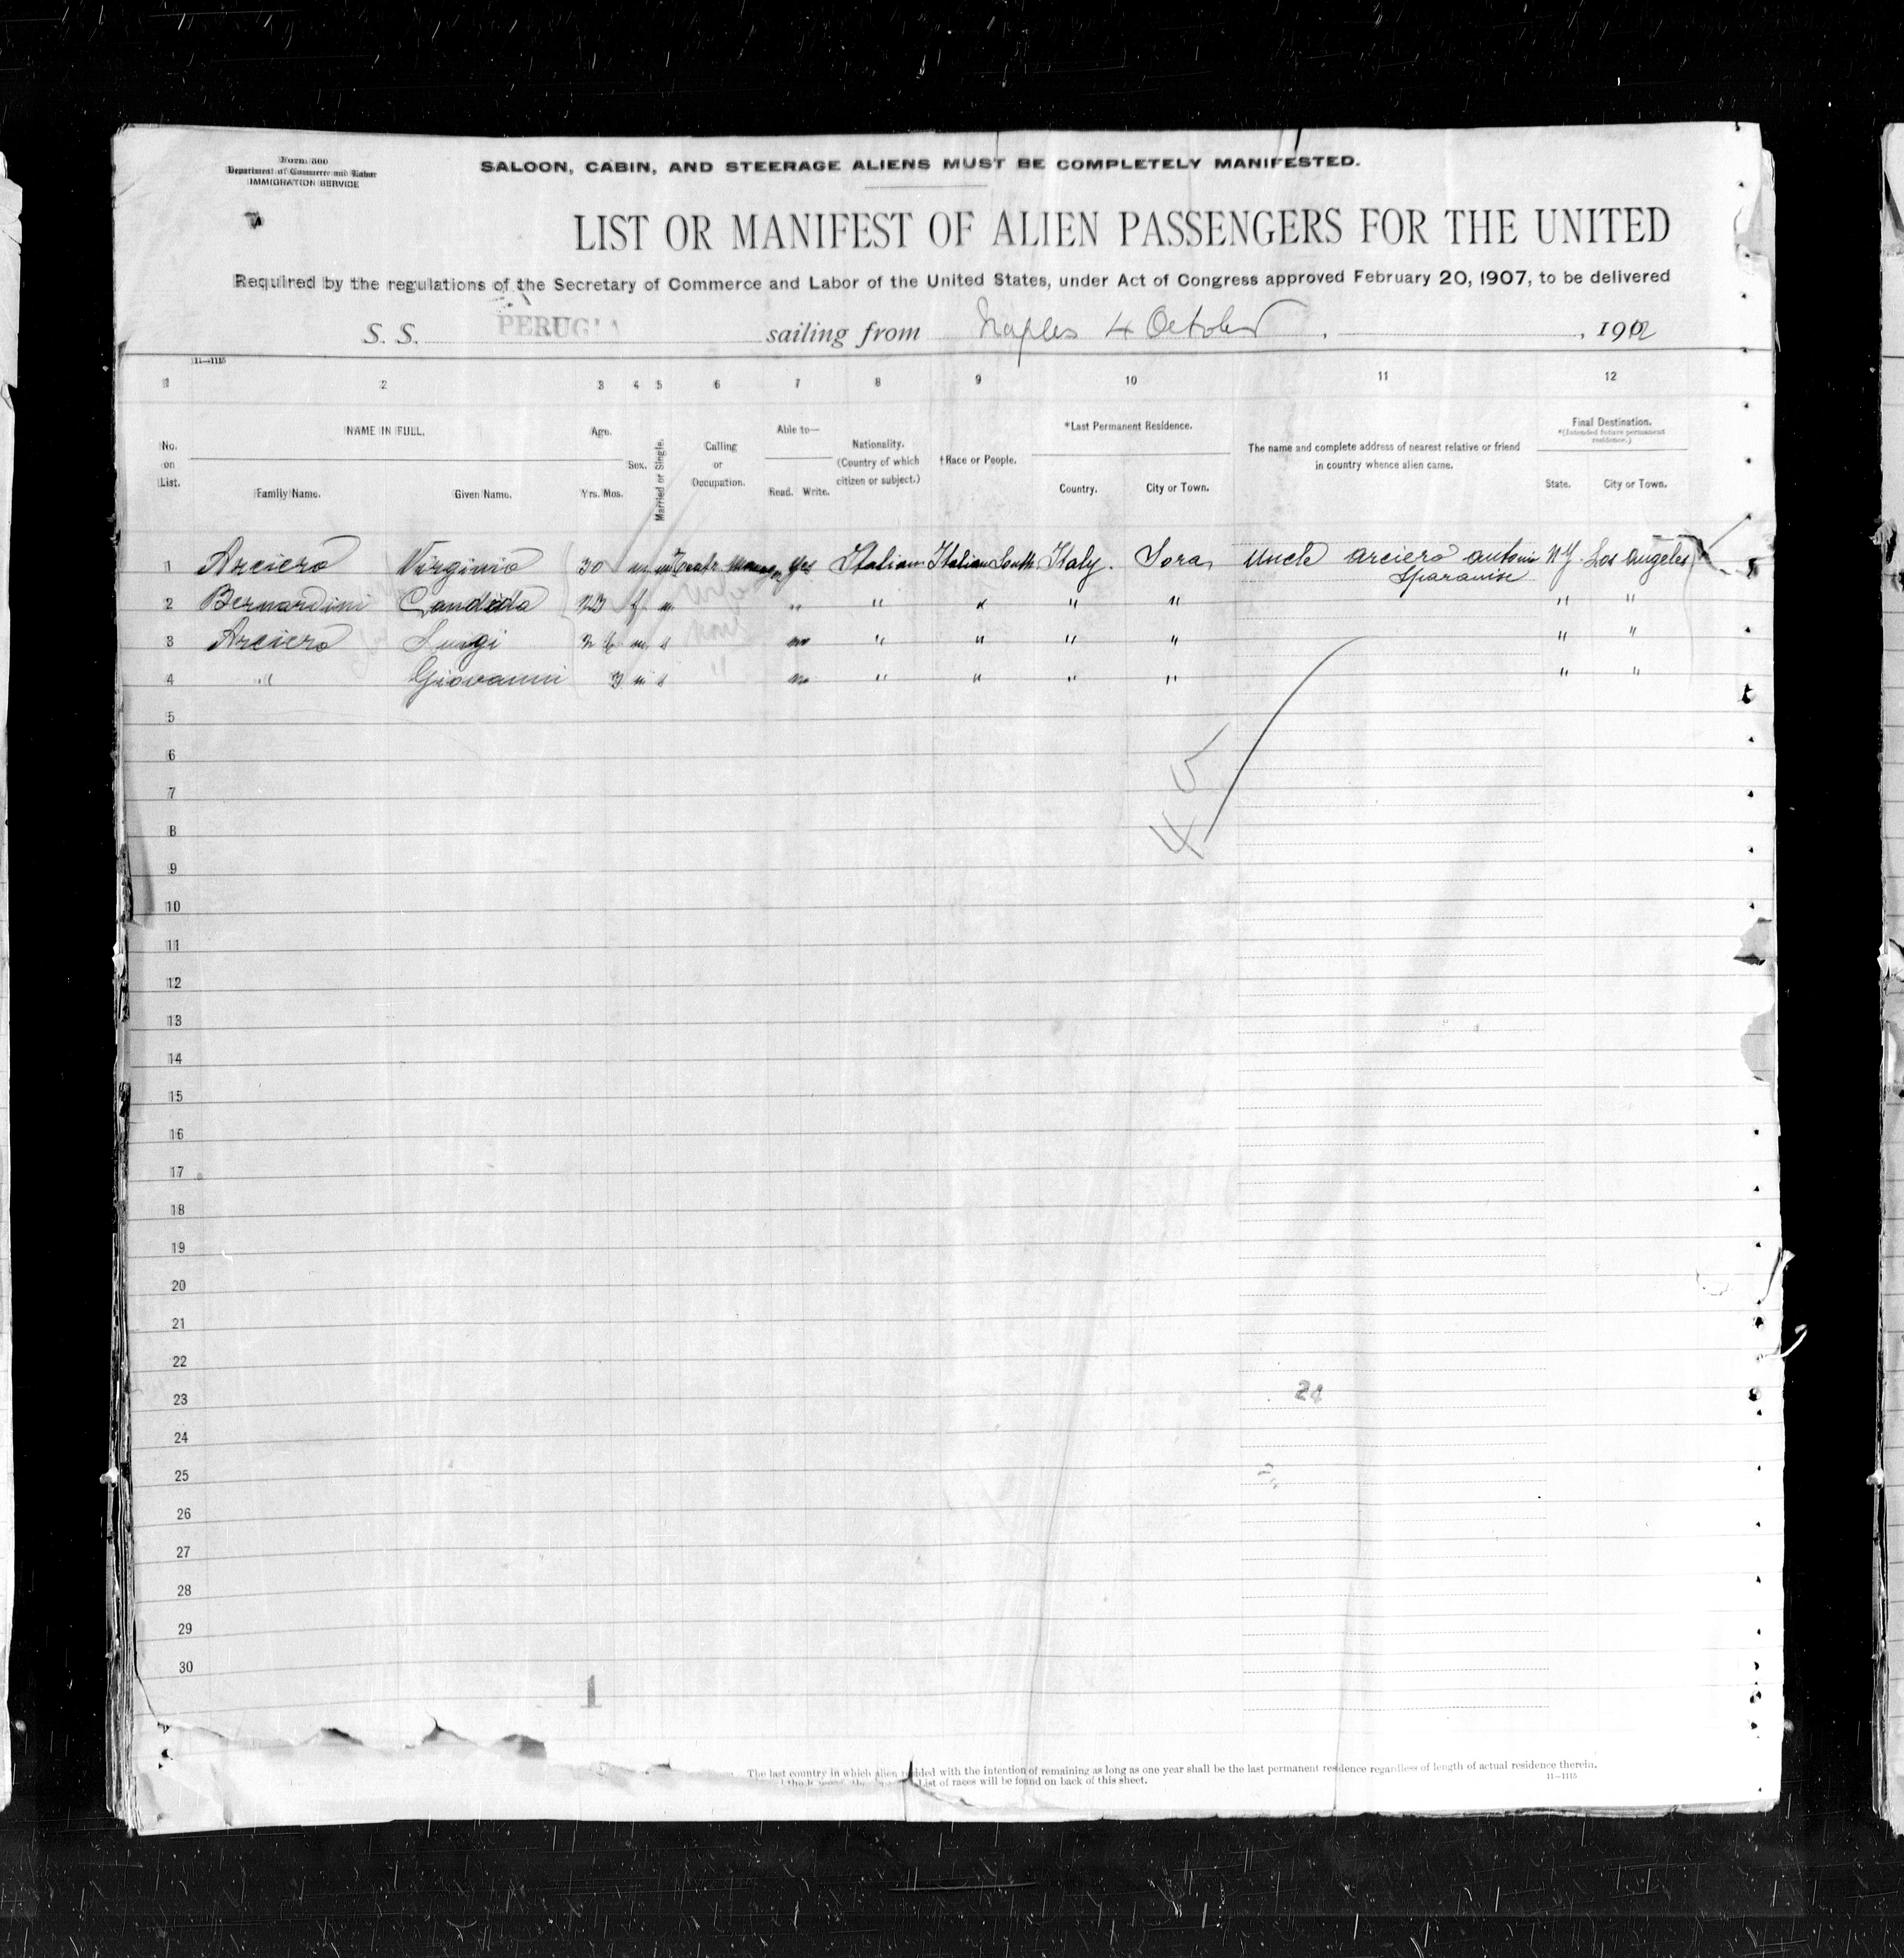 Form 500
Department of Commerce and Labor
IMMIGRATION SERVICE
SALOON, CABIN, AND STEERAGE ALIENS MUST BE COMPLETELY MANIFESTED.
LIST OR MANIFEST OF ALIEN PASSENGERS FOR THE UNITED
Required by the regulations of the Secretary of Commerce and Labor of the United States, under Act of Congress approved February 20, 1907, to be delivered
S. S. PERUGIA sailing from Naples 4 October , , 19
11—1115
1 2 3 4 5 6 7 8 9 10 11 12
No. on List.
NAME IN FULL.
Family Name. Given Name.
Age.
Yrs. Mos.
Sex.
Married or Single.
Calling or Occupation.
Able to—
Read. Write.
Nationality. (Country of which citizen or subject.)
†Race or People.
*Last Permanent Residence.
Country. City or Town.
The name and complete address of nearest relative or friend in country whence alien came.
Final Destination.
*(Intended future permanent residence.)
State. City or Town.
1 Arciero Virginio 30 m m yes Italian Italian South Italy. Sora Uncle Arciero Antonio N.Y. Los Angeles
Sparanise
2 Bernardini Candida f m " " " " " " "
3 Arciero Luigi m s no " " " " " "
4 " Giovanni m s no " " " " " "
5
6
7
8
9
10
11
12
13
14
15
16
17
18
19
20
21
22
23
24
25
26
27
28
29
30
4
5
1
The last country in which alien resided with the intention of remaining as long as one year shall be the last permanent residence regardless of length of actual residence therein.
List of races will be found on back of this sheet.
11—1115